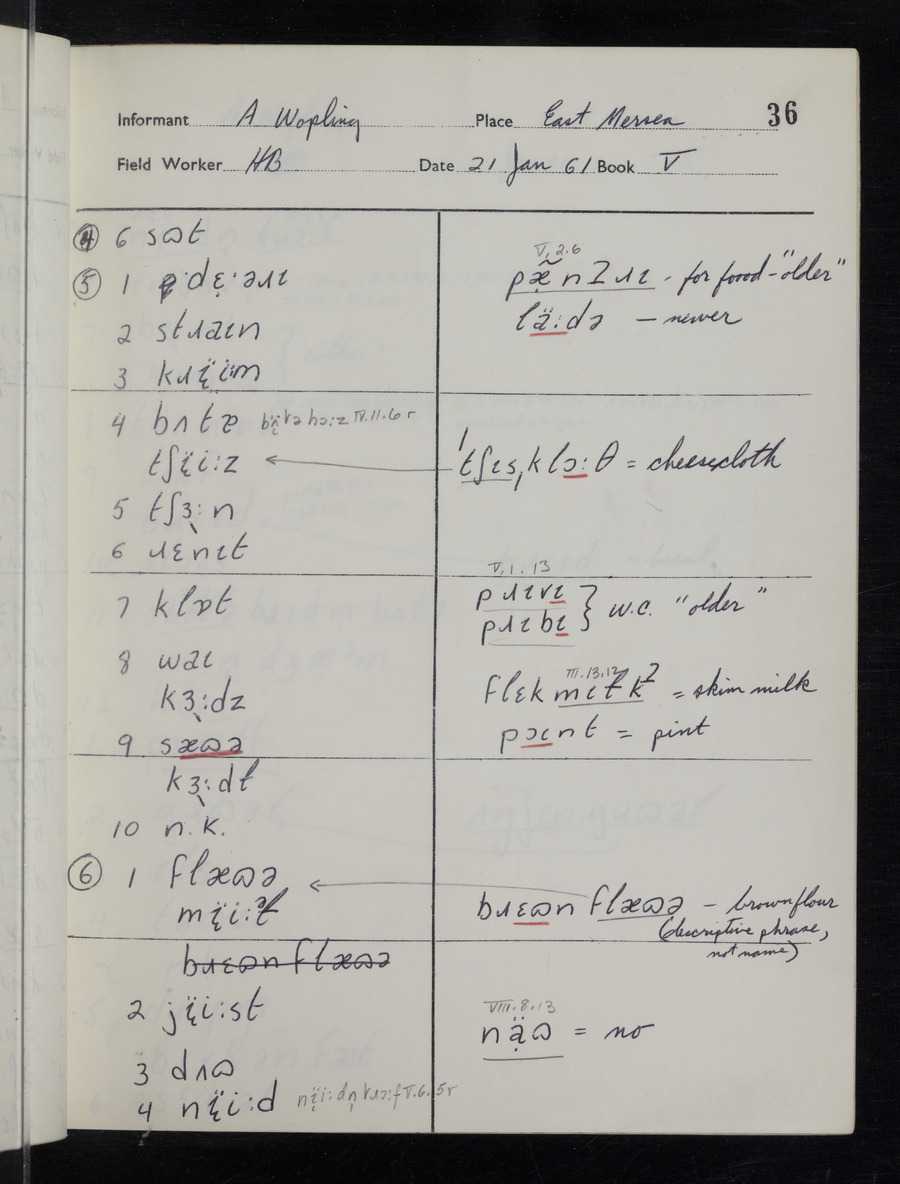 36
Informant A Wopling Place East Mersea
Field Worker HB Date 21 Jan 61 Book V
④ 6 sɷt
⑤ 1 dɛ̣ːəɹɪ
2 stɹaɪn
3 kɹɪ̣̈ïːm
4 bʌtə bɪ̣̈tə hɔːz IV.11.6 r
tʃɪ̣̈iːz
5 tʃɜːn
6 ɹɛnɪt
7 klɒt
8 waɪ
kɜːdz
9 sæɷə
kɜːdɫ
10 n.k.
⑥ 1 flæɷə
mɪ̣̈iːəɫ
bɹɛɷn flæɷə
2 jɪ̣̈iːst
3 dʌɷ
4 nɪ̣̈iːd nɪ̣̈iːdn̩ tɹɔːf V.6.5r
V.2.6
pæ̣̃nʔɹɪ - for food - "older"
läːdə — newer
ˈtʃɪsˌklɔːθ = cheesecloth
V.1.13
pɹɪvɪ
pɹɪbɪ } w.c. "older"
III.13.12
flɛk mɪɫkʔ = skim milk
pɔɪnt = pint
bɹɛɷn flæɷə — brown flour
(descriptive phrase,
not name)
VIII.8.13
nạ̈ɷ = no